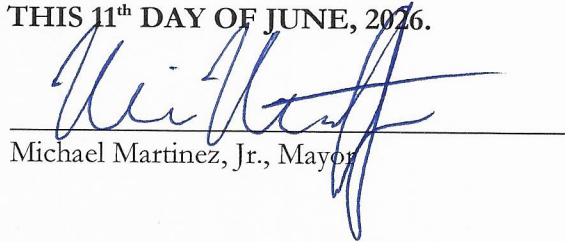 THIS 11th DAY OF JUNE, 2026.
Michael Martinez, Jr., Mayor